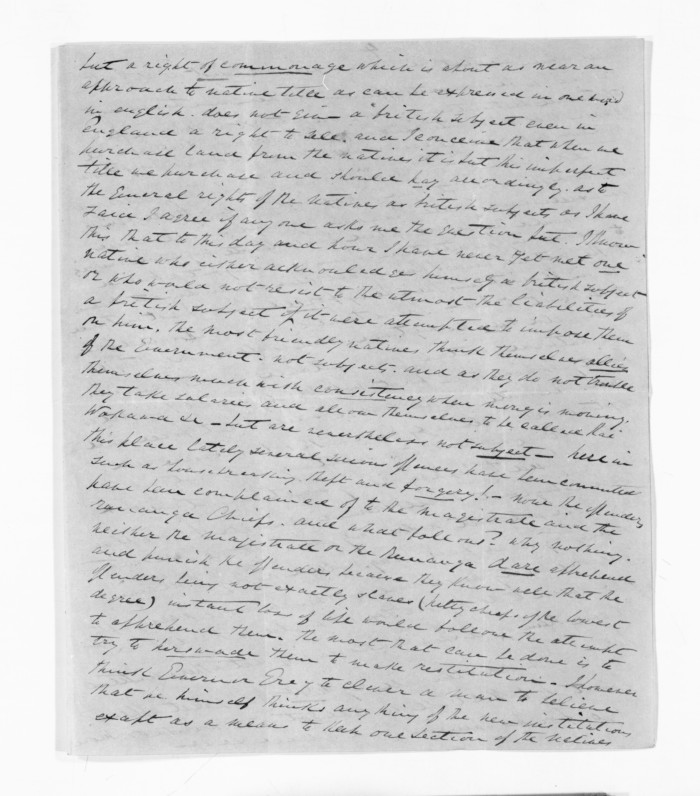 but a right of commonage which is about as near an
approach to native title as can be expressed in one word
in english. does not give a british subject even in
England a right to sell. and I conceive that when we
purchase land from the natives it is but this imperfect
title we purchase and should pay accordingly. as to
the General rights of the natives as british subjects as I have
said I agree if any one asks me the question but. I know
this that to this day and hour I have never yet met one
native who either acknowledges himself a british subject
or who would not resist to the utmost the liabilities of
a british subject if it were attempted to impose them
on him. the most friendly natives think themselves allies
of the Government. not subjects. and as they do not trouble
themselves much with consistency when money is moving.
they take salaries and allow themselves to be called Kai
Wakawa &c – but are nevertheless not subject – here in
this place lately several serious offences have been committed
such as housebreaking theft and forgery! – now the offenders
have been complained of to the magistrate and the
runanga Chiefs. and what follows? why nothing.
neither the magistrate or the Runanga dare apprehend
and punish the offenders because they know well that the
offenders being not exactly slaves (petty chiefs of the lowest
degree) instant loss of life would follow the attempt
to apprehend them. the most that can be done is to
try to persuade them to make restitution. I however
think Governor Grey to clever a man to believe
that he himself thinks anything of the new institutions
exept as a means to keep one section of the natives